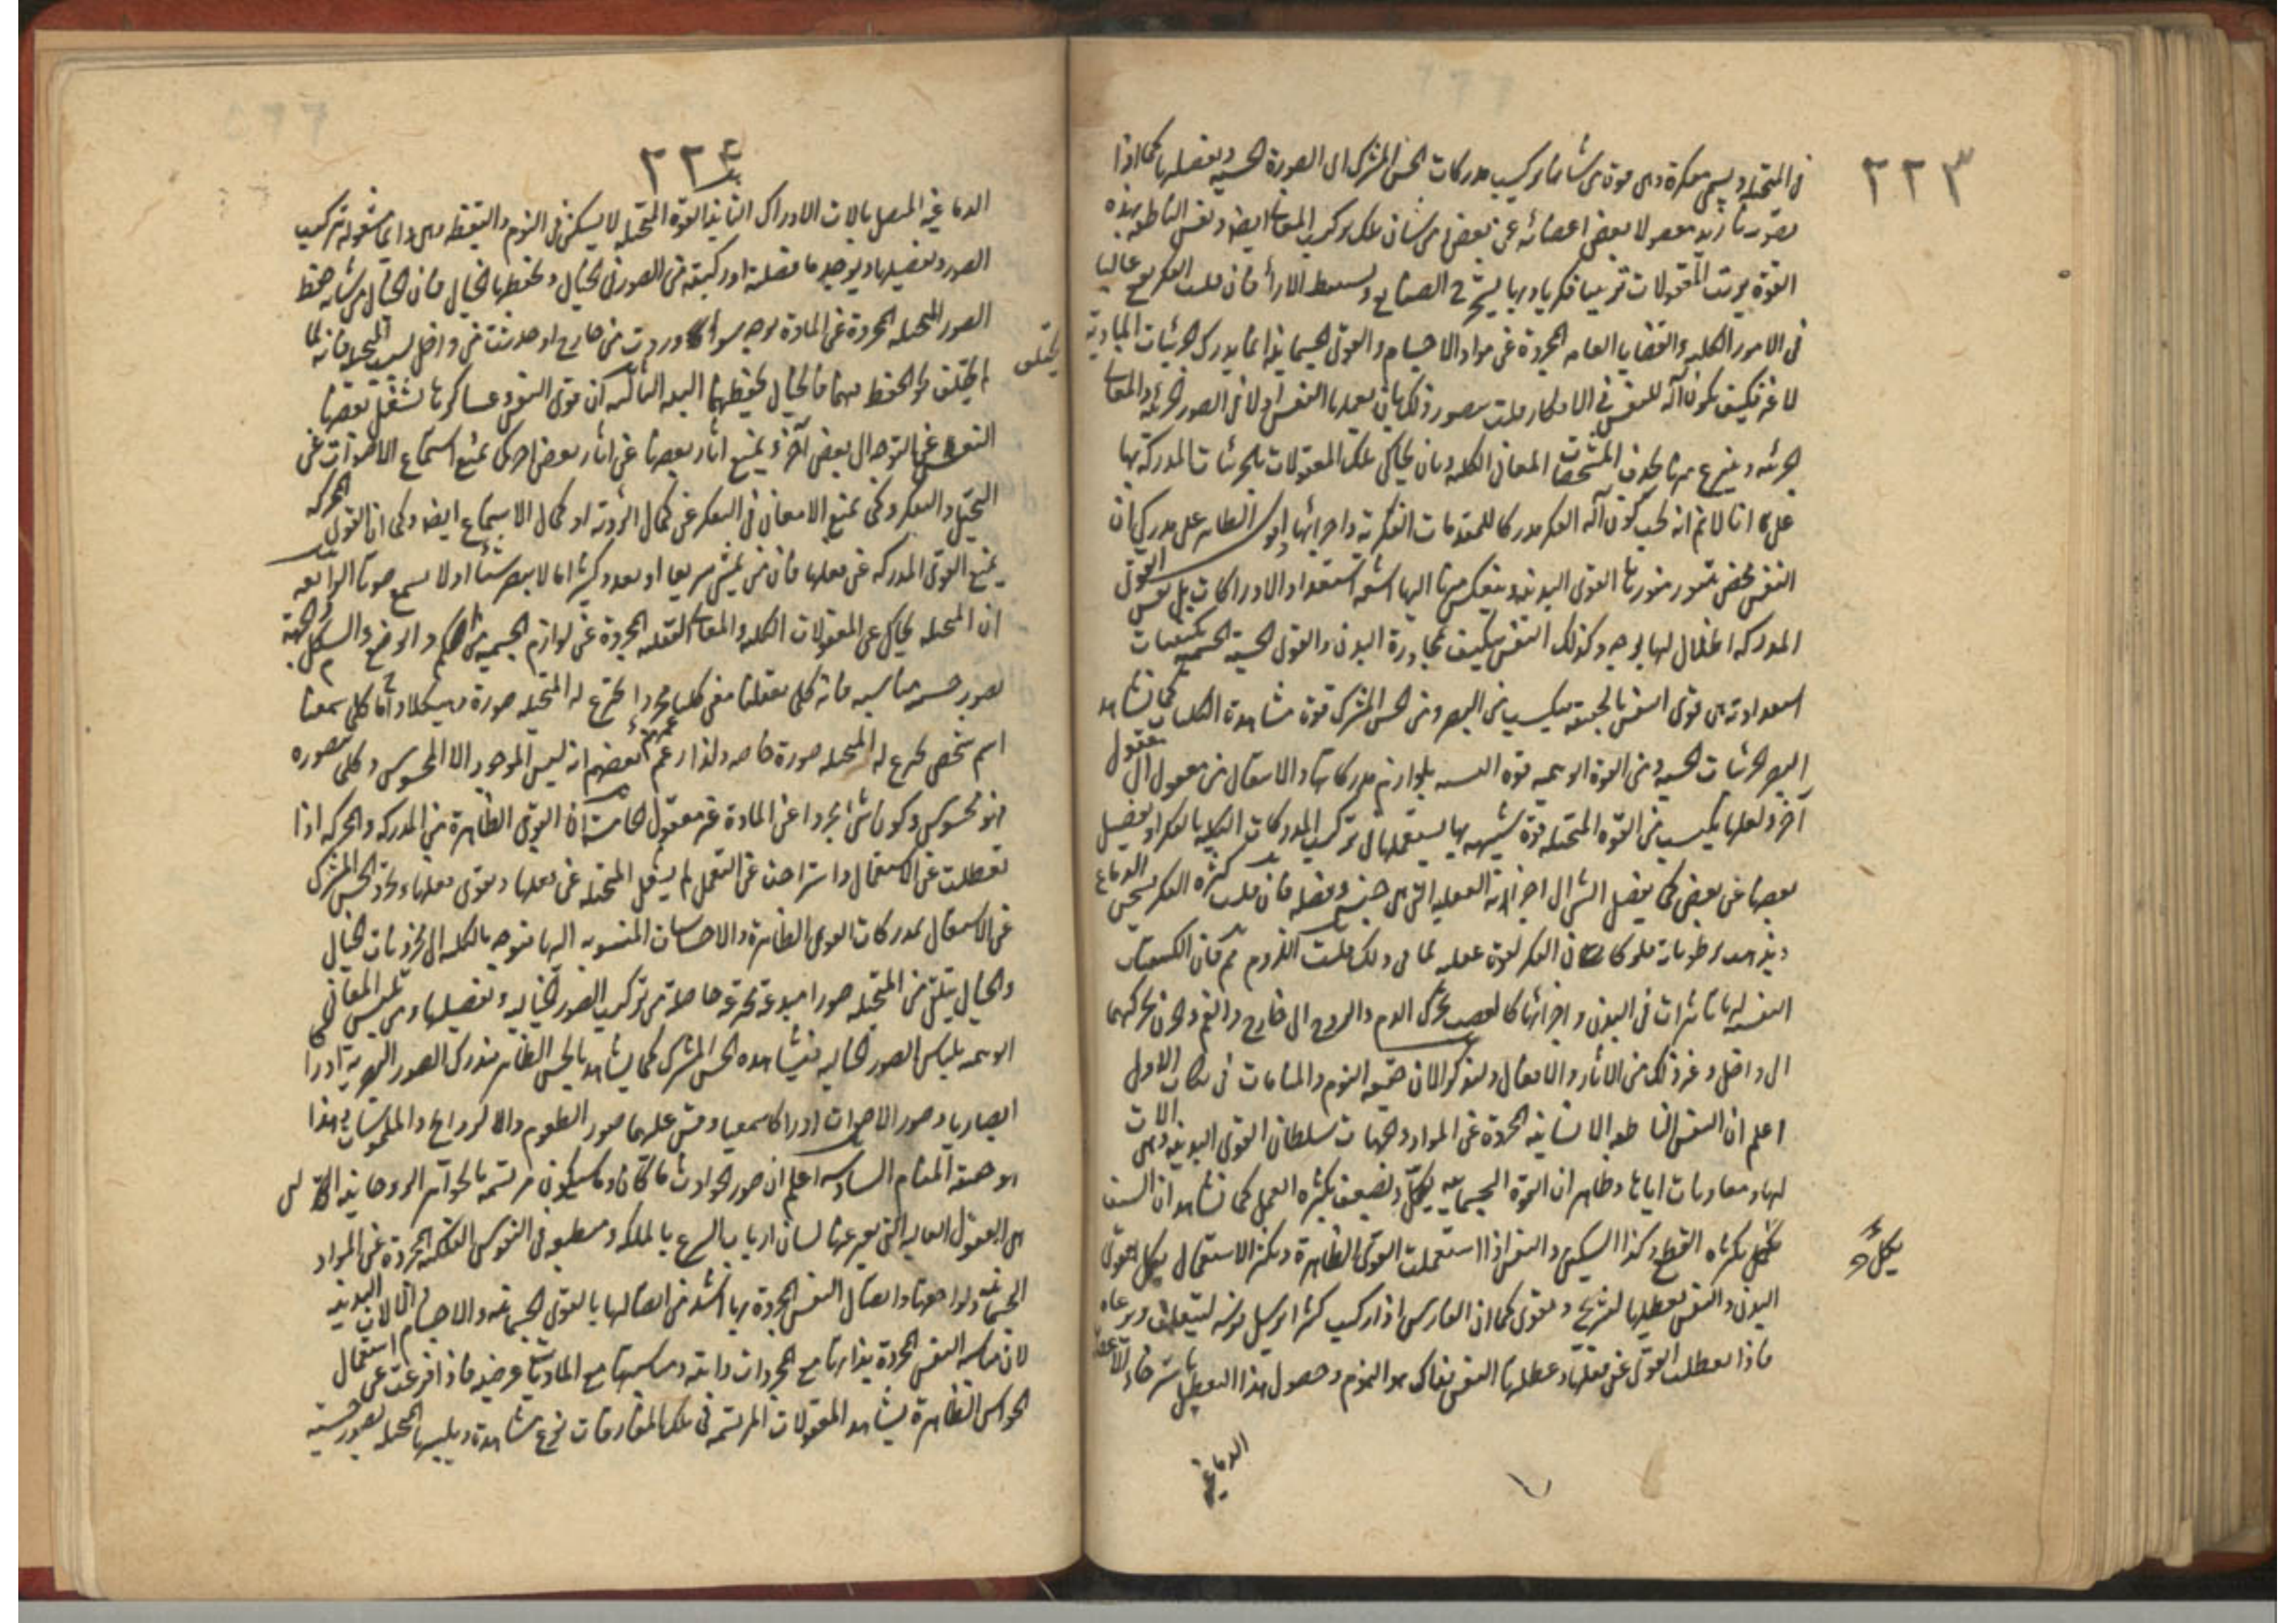 ٢٢٣
في المتخيلة ويسمى مفكرة وهي قوة من شأنها تركيب مدركات الحس المشترك اى الصورة الحسية وتفصيلها كما اذا
بعض اعضائه عن بعض من شأن تلك تركيب المعانى ايضا ونفس الناطقة بهذه
القوة يرتب المعقولات ترتيبا فكريا وبها يستخرج الصنايع ويستنبط الاراء فان قلت الفكر يقع غالبا
في الامور الكلية والقضايا العامة المجردة عن مواد الاجسام والقوى الجسمانية انما يدرك الجزئيات المادية
لا غير فكيف يكون آلة للنفس في الافكار قلت يتصور ذلك بان يعملها النفس اولا في الصور الجزئية والمعانى
الجزئية وينتزع منها بحذف المشخصات المعانى الكلية وبان يحاكى تلك المعقولات بالجزئيات المدركة بها
على انا لا نم انه يجب كون آلة الفكر مدركا للمقدمات الفكرية واجزائها
النفس متنور بنورها القوى البدنية وينعكس منها اليها اشعة استعداد الادراكات بل نفس القوى
المدركة اظلال لها بوجه وكذلك النفس يتكيف بمجاورة البدن والقوى الحسية الجسمية بكيفيات
استعدادية من قوى النفس بالحقيقة يكتسب من البصر ومن الحس المشترك قوة مشاهدة الكليات كما تشاهد
البصر الجزئيات الحسية ومن القوة الوهمية قوة بلوازم مدركاتها والانتقال من معقول الى معقول
آخر ولعلها يكتسب من القوة المتخيلة قوة شبيهة بها يستعملها في تركيب المدركات الكلية بالفكر او يفصل
بعضها عن بعض كما يفصل الشئ الى اجزائه العقلية التى هى جنسه وفصله فان قلت كثرة الفكر يسخن الدماغ
ويذهب رطوباته فلو كان الفكر لقوة عقلية لما فى ذلك قلت اللزوم مم فان الكيفيات
النفسية لها تأثيرات في البدن واجزائها كالغضب يحرك الدم والروح الى خارج والغم والحزن يحركهما
الى داخل وغير ذلك من الآثار والافعال ولنذكر الان حقيقة النوم والمنامات في نكات الاول
اعلم ان النفس الناطقة الانسانية المجردة عن المواد والجهات سلطان القوى البدنية وهى آلات
لها ومعاونات اياها وظاهر ان القوة الجسمانية يكل ويضعف بكثرة العمل كما نشاهد ان السيف
بكثرة القطع وكذا السكين والنفس اذا استعملت القوى الظاهرة ويكثر الاستعمال يكل قوى
البدن والنفس بعطلها لتستريح وتقوى كما ان الفارس اذا ركب كثيرا يرسل فرسه ليتعلف ويرعاه
فاذا تعطلت القوى عن فعلها وعطلها النفس فذاك هو النوم وحصول هذا التعطل باسترخاء الاعصاب
يكلّ
الدماغية
٢٢٤
الدماغية المتصل بآلات الادراك الثانية القوة المتخيلة لا يسكن في النوم واليقظة وهى دائما مشغولة بتركيب
الصور وتفصيلها ويوجد ما فصلته او ركبته من الصور في الخيال ويحفظها الخيال فان الخيال من شأنه حفظ
الصور المتخيلة المجردة عن المادة بوجه سواء وردت من خارج او حدثت من داخل بسبب المتخيلة فانه لما
لم يختلف الحفظ منهما فالخيال يحفظهما البتة الثالثة ان قوى النفس وعساكرها يشغل بعضها
النفس عن التوجه الى بعض آخر ويمنع آثار بعضها عن آثار بعض اخر كما يمنع استماع الاصوات عن
التخيل والتفكر وكما يمنع الامعان في الفكر عن كمال الرؤية او كمال الاستماع ايضا وكما ان القوى المحركة
يمنع القوى المدركة عن فعلها فان من يمشى سريعا او يعدو كثيرا ما لا يبصر شيئا او لا يسمع صوتا الرابعة
ان المتخيلة يحاكى عن المعقولات الكلية والمعانى العقلية المجردة عن لوازم الجسمية من الكم والوضع والشكل والجهة
بصور حسية مناسبة فانه كلما تعقلنا معنى كليا مجردا يخترع له المتخيلة صورة وشكلا وكلما سمعنا
اسم شخص يخترع له المتخيلة صورة خاصة ولذا زعم بعضهم انه ليس الموجود الا المحسوس وكلما نتصوره
فهو محسوس وكون شئ مجردا عن المادة غير معقول الخامسة ان القوى الظاهرة من المدركة والمحركة اذا
تعطلت عن الاستعمال واستراحت عن التعمل لم يشغل المتخيلة عن فعلها ويقوى فعلها وتجرد الحس المشترك
عن الاشتغال بمدركات القوى الظاهرة والاحساسات المنسوبة اليها يتوجه بالكلية الى مخزونات الخيال
والخيال يتلقى من المتخيلة صورا مبدعة مخترعة حاصلة من تركيب الصور الخيالية وتفصيلها ومن تلبس المعانى
الوهمية بلباس الصور الخيالية فيشاهده الحس المشترك كما يشاهد بالحس الظاهر فيدرك الصور البصرية ادراكا
ابصاريا وصور الاصوات ادراكا سمعيا وقس عليهما صور الطعوم والروايح والملموسات فهذا
هو حقيقة المنام السادسة اعلم ان صور الحوادث ما كان وما سيكون مرتسمة بالجواهر الروحانية
هى العقول العالية التى يعبر عنها لسان ارباب الشرع بالملائكة ومنطبعة في النفوس الفلكية المجردة عن المواد
الجسمانية ولواحقها واتصال النفس المجردة بها اشد من اتصالها بالقوى الجسمانية والاجسام والآلات البدنية
لان مناسبة النفس المجردة بذاتها مع المجردات ذاتية ومناسبتها مع الماديات عرضية فاذا فرغت عن استعمال
الحواس الظاهرة يشاهد المعقولات المرتسمة في تلك المفارقات نوع مشاهدة ويلبسها المتخيلة بصور حسية
يختلف